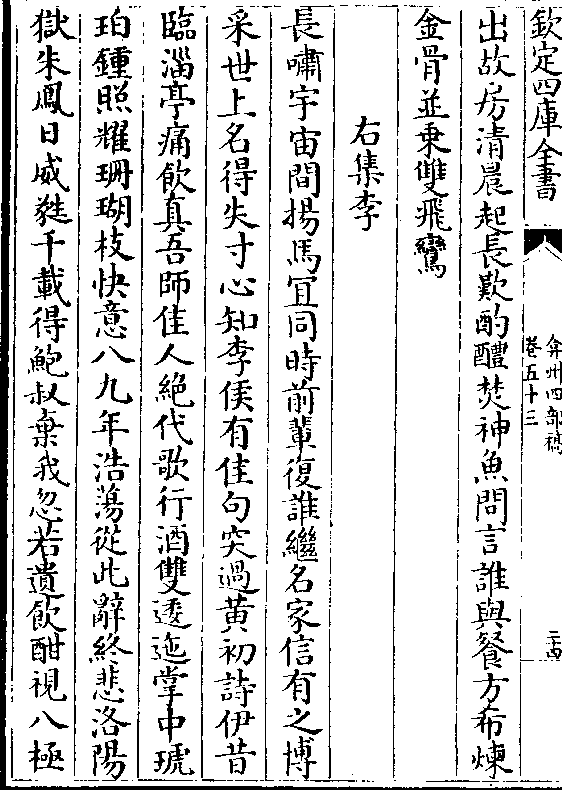 欽定四庫全書
弇州四部稿
卷五十三
二十四
出故房清晨起長歎酌醴焚神魚問言誰與餐方希煉
金骨並乗雙飛鸞
右集李
長嘯宇宙間揚馬宜同時前輩復誰繼名家信有之博
采世上名得失寸心知李侯有佳句突過黄初詩伊昔
臨淄亭痛飲真吾師佳人絶代歌行酒雙逶迤掌中琥
珀鍾照耀珊瑚枝快意八九年浩蕩從此辭終悲洛陽
獄朱鳳日威蕤千載得鮑叔棄我忽若遺飲酣視八極